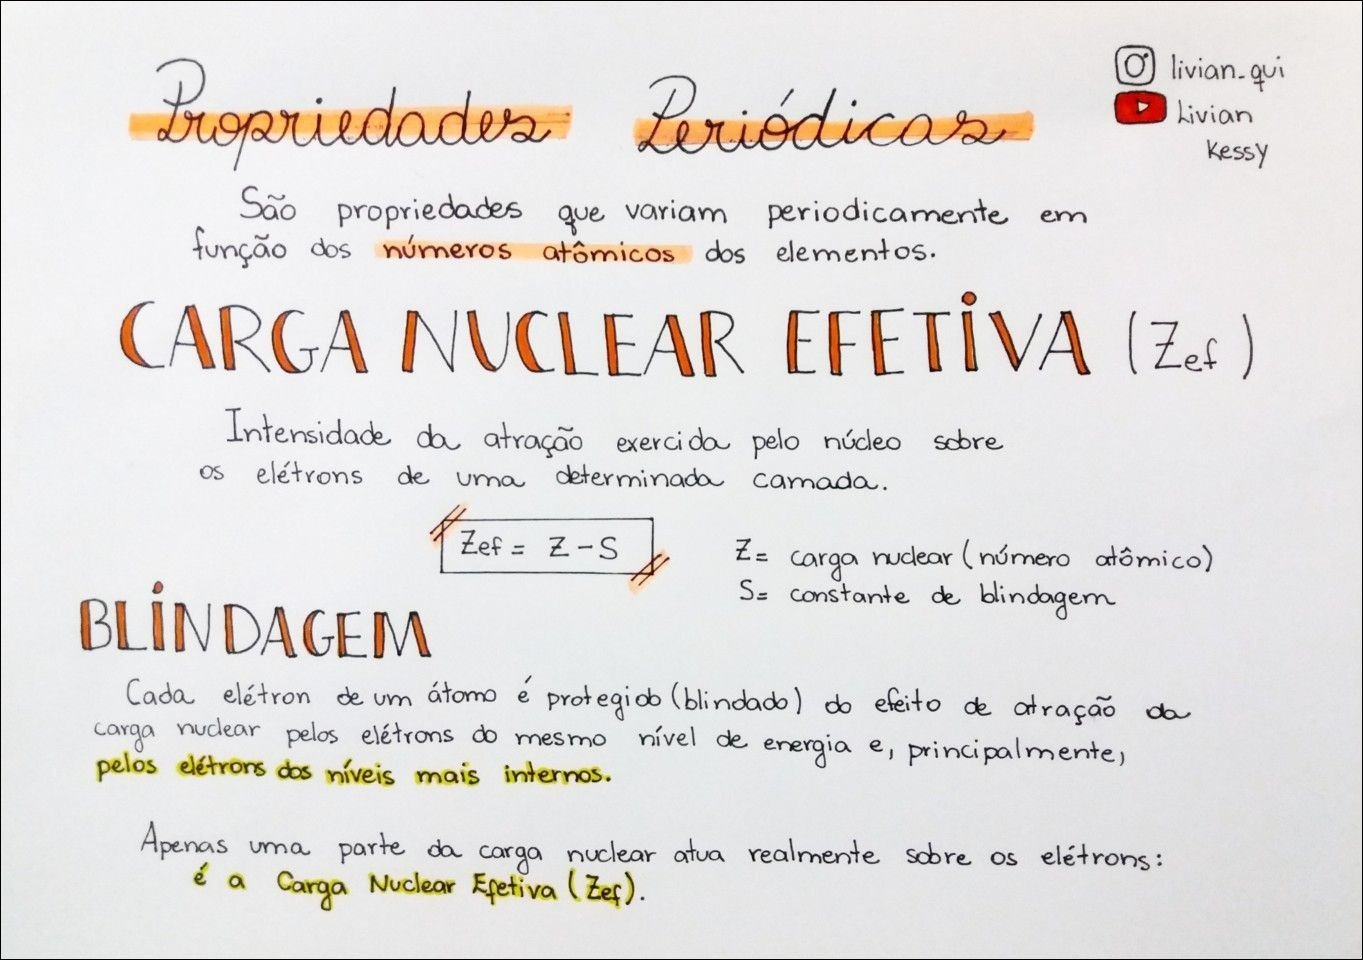 Propriedades Periódicas
livian_qui
Livian
Kessy
São propriedades que variam periodicamente em
função dos números atômicos dos elementos.
CARGA NUCLEAR EFETIVA (Zef)
Intensidade da atração exercida pelo núcleo sobre
os elétrons de uma determinada camada.
Zef = Z - S
Z= carga nuclear (número atômico)
S= constante de blindagem
BLINDAGEM
Cada elétron de um átomo é protegido (blindado) do efeito de atração da
carga nuclear pelos elétrons do mesmo nível de energia e, principalmente,
pelos elétrons dos níveis mais internos.
Apenas uma parte da carga nuclear atua realmente sobre os elétrons:
é a Carga Nuclear Efetiva (Zef).